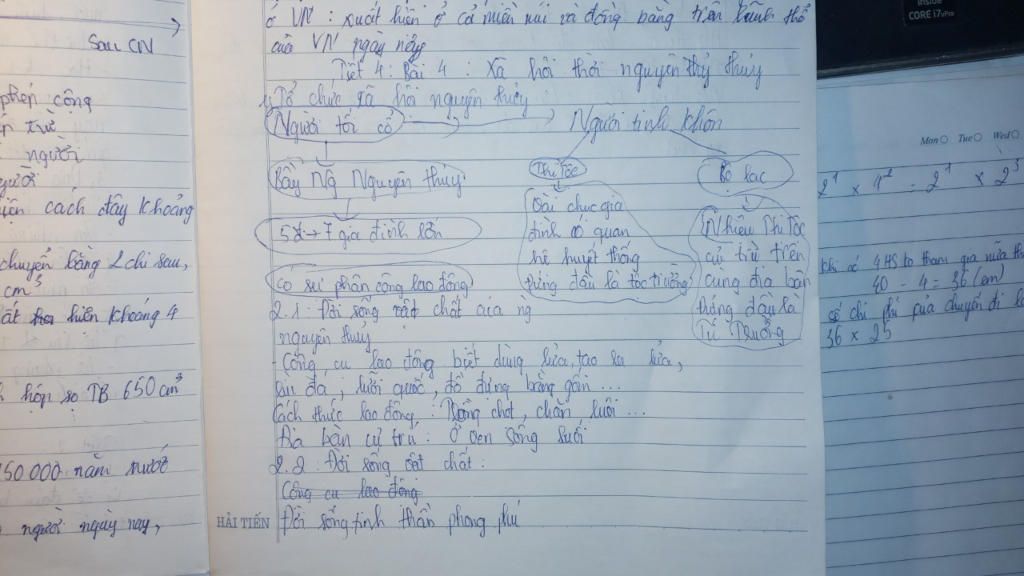 Sau CN
phép cộng
trừ
người
người
cách đây khoảng
chuyển bằng 2 chi sau,
cm³
hiên khoảng 4
hộp sọ TB 650 cm³
150 000 năm trước
người ngày nay,
ở VN : xuất hiện ở cả miền núi và đồng bằng trên lãnh thổ
của VN ngày nay
Tiết 4 : Bài 4 : Xã hội thời nguyên thủy thủy
1, Tổ chức xã hội nguyên thủy
Người tối cổ
Người tinh khôn
Bầy Ng Nguyên thủy
Thị Tộc
Bộ lạc
5 → 7 gia đình lớn
có sự phân công lao động
Vài chục gia
đình có quan
hệ huyết thống
đứng đầu là tộc trưởng
Nhiều Thị Tộc
cư trú trên
cùng địa bàn
đứng đầu là
Tù Trưởng
2.1 : Đời sống vật chất của ng
nguyên thủy
- Công cụ lao động biết dùng lửa, tạo ra lửa,
đá ; lưỡi quốc, đồ đựng bằng gốm ...
Cách thức lao động : Trồng chọt, chăn nuôi ...
Địa bàn cư trú : Ở ven sông suối
2.2 : Đời sống vật chất :
Công cụ lao động
Đời sống tinh thần phong phú
HẢI TIẾN
inside
CORE i7 vPro
Mon Tue Wed
khi có 4 HS ko tham gia nữa th
40 - 4 = 36 (em)
chi phí của chuyến đi là
36 × 25